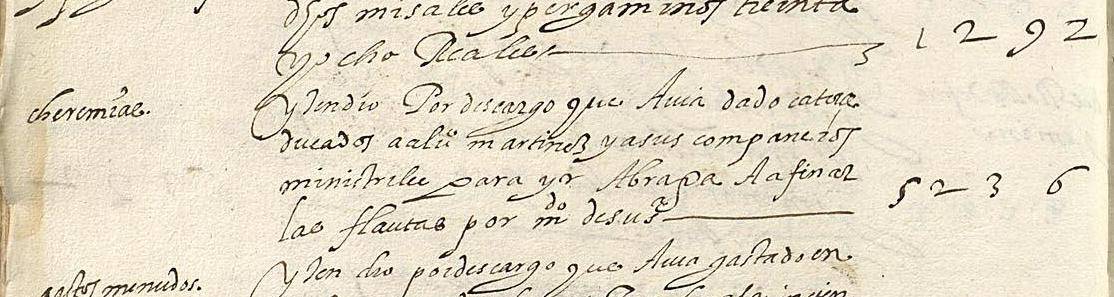 dhos misales y pergaminos treinta
y ocho Reales 1292
cheremias.
yten dio Por descargo que Avia dado catorze
ducados a alº martinez y a sus compañeros
ministriles para yr A braga A afinar
las flautas por mdo de su sª 5236
gastos menudos.
yten dio por descargo que Avia gastado en